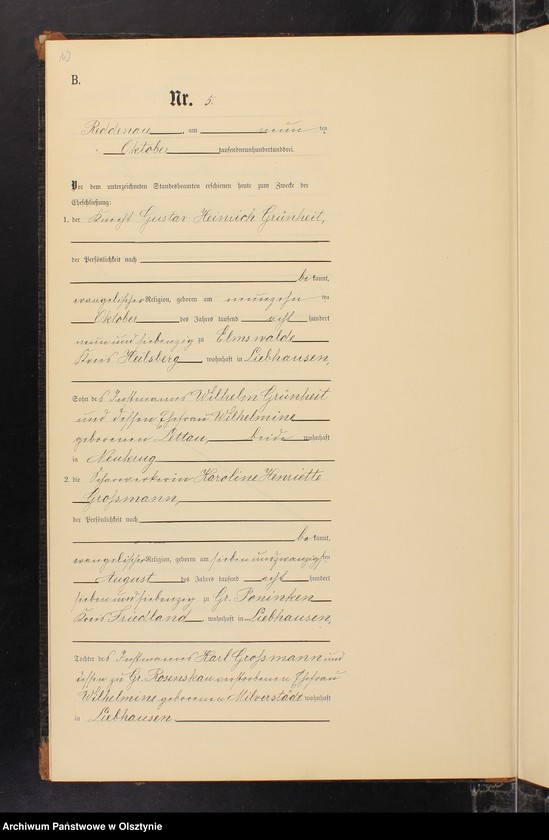 B.
Nr. 5.
Riddenau, am neun ten
Oktober tausendneunhundertunddrei.
Vor dem unterzeichneten Standesbeamten erschienen heute zum Zwecke der
Eheschließung:
1. der Knecht Gustav Heinrich Grünheit,
der Persönlichkeit nach
bekannt,
evangelischer Religion, geboren am neunzehn ten
Oktober des Jahres tausend acht hundert
neun und siebenzig zu Elmswalde
Kreis Heilsberg, wohnhaft in Liebhausen,
Sohn des Instmannes Wilhelm Grünheit
und dessen Ehefrau Wilhelmine
geborenen Lettau, beide wohnhaft
in Neukrug
2. die Scharwerkerin Karoline Henriette
Großmann,
der Persönlichkeit nach
bekannt,
evangelischer Religion, geboren am sieben und zwanzigsten
August des Jahres tausend acht hundert
sieben und siebenzig zu Gr. Poninken
Kreis Friedland, wohnhaft in Liebhausen,
Tochter des Instmannes Karl Großmann und
dessen zu Gr. verstorbenen Ehefrau
Wilhelmine geborenen Milverstädt wohnhaft
in Liebhausen
Archiwum Państwowe w Olsztynie